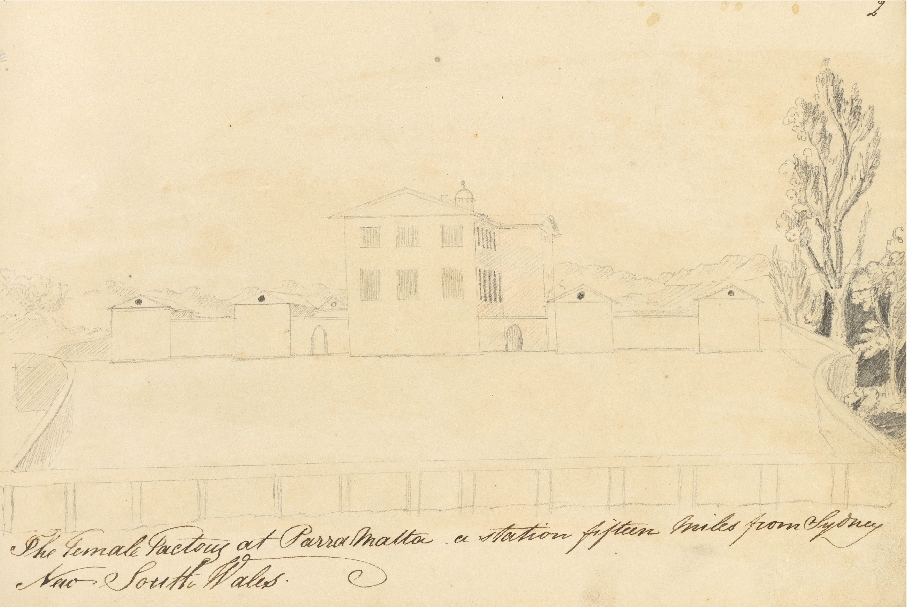 2
The Female Factory at Parra Matta a station fifteen Miles from Sydney
New South Wales.